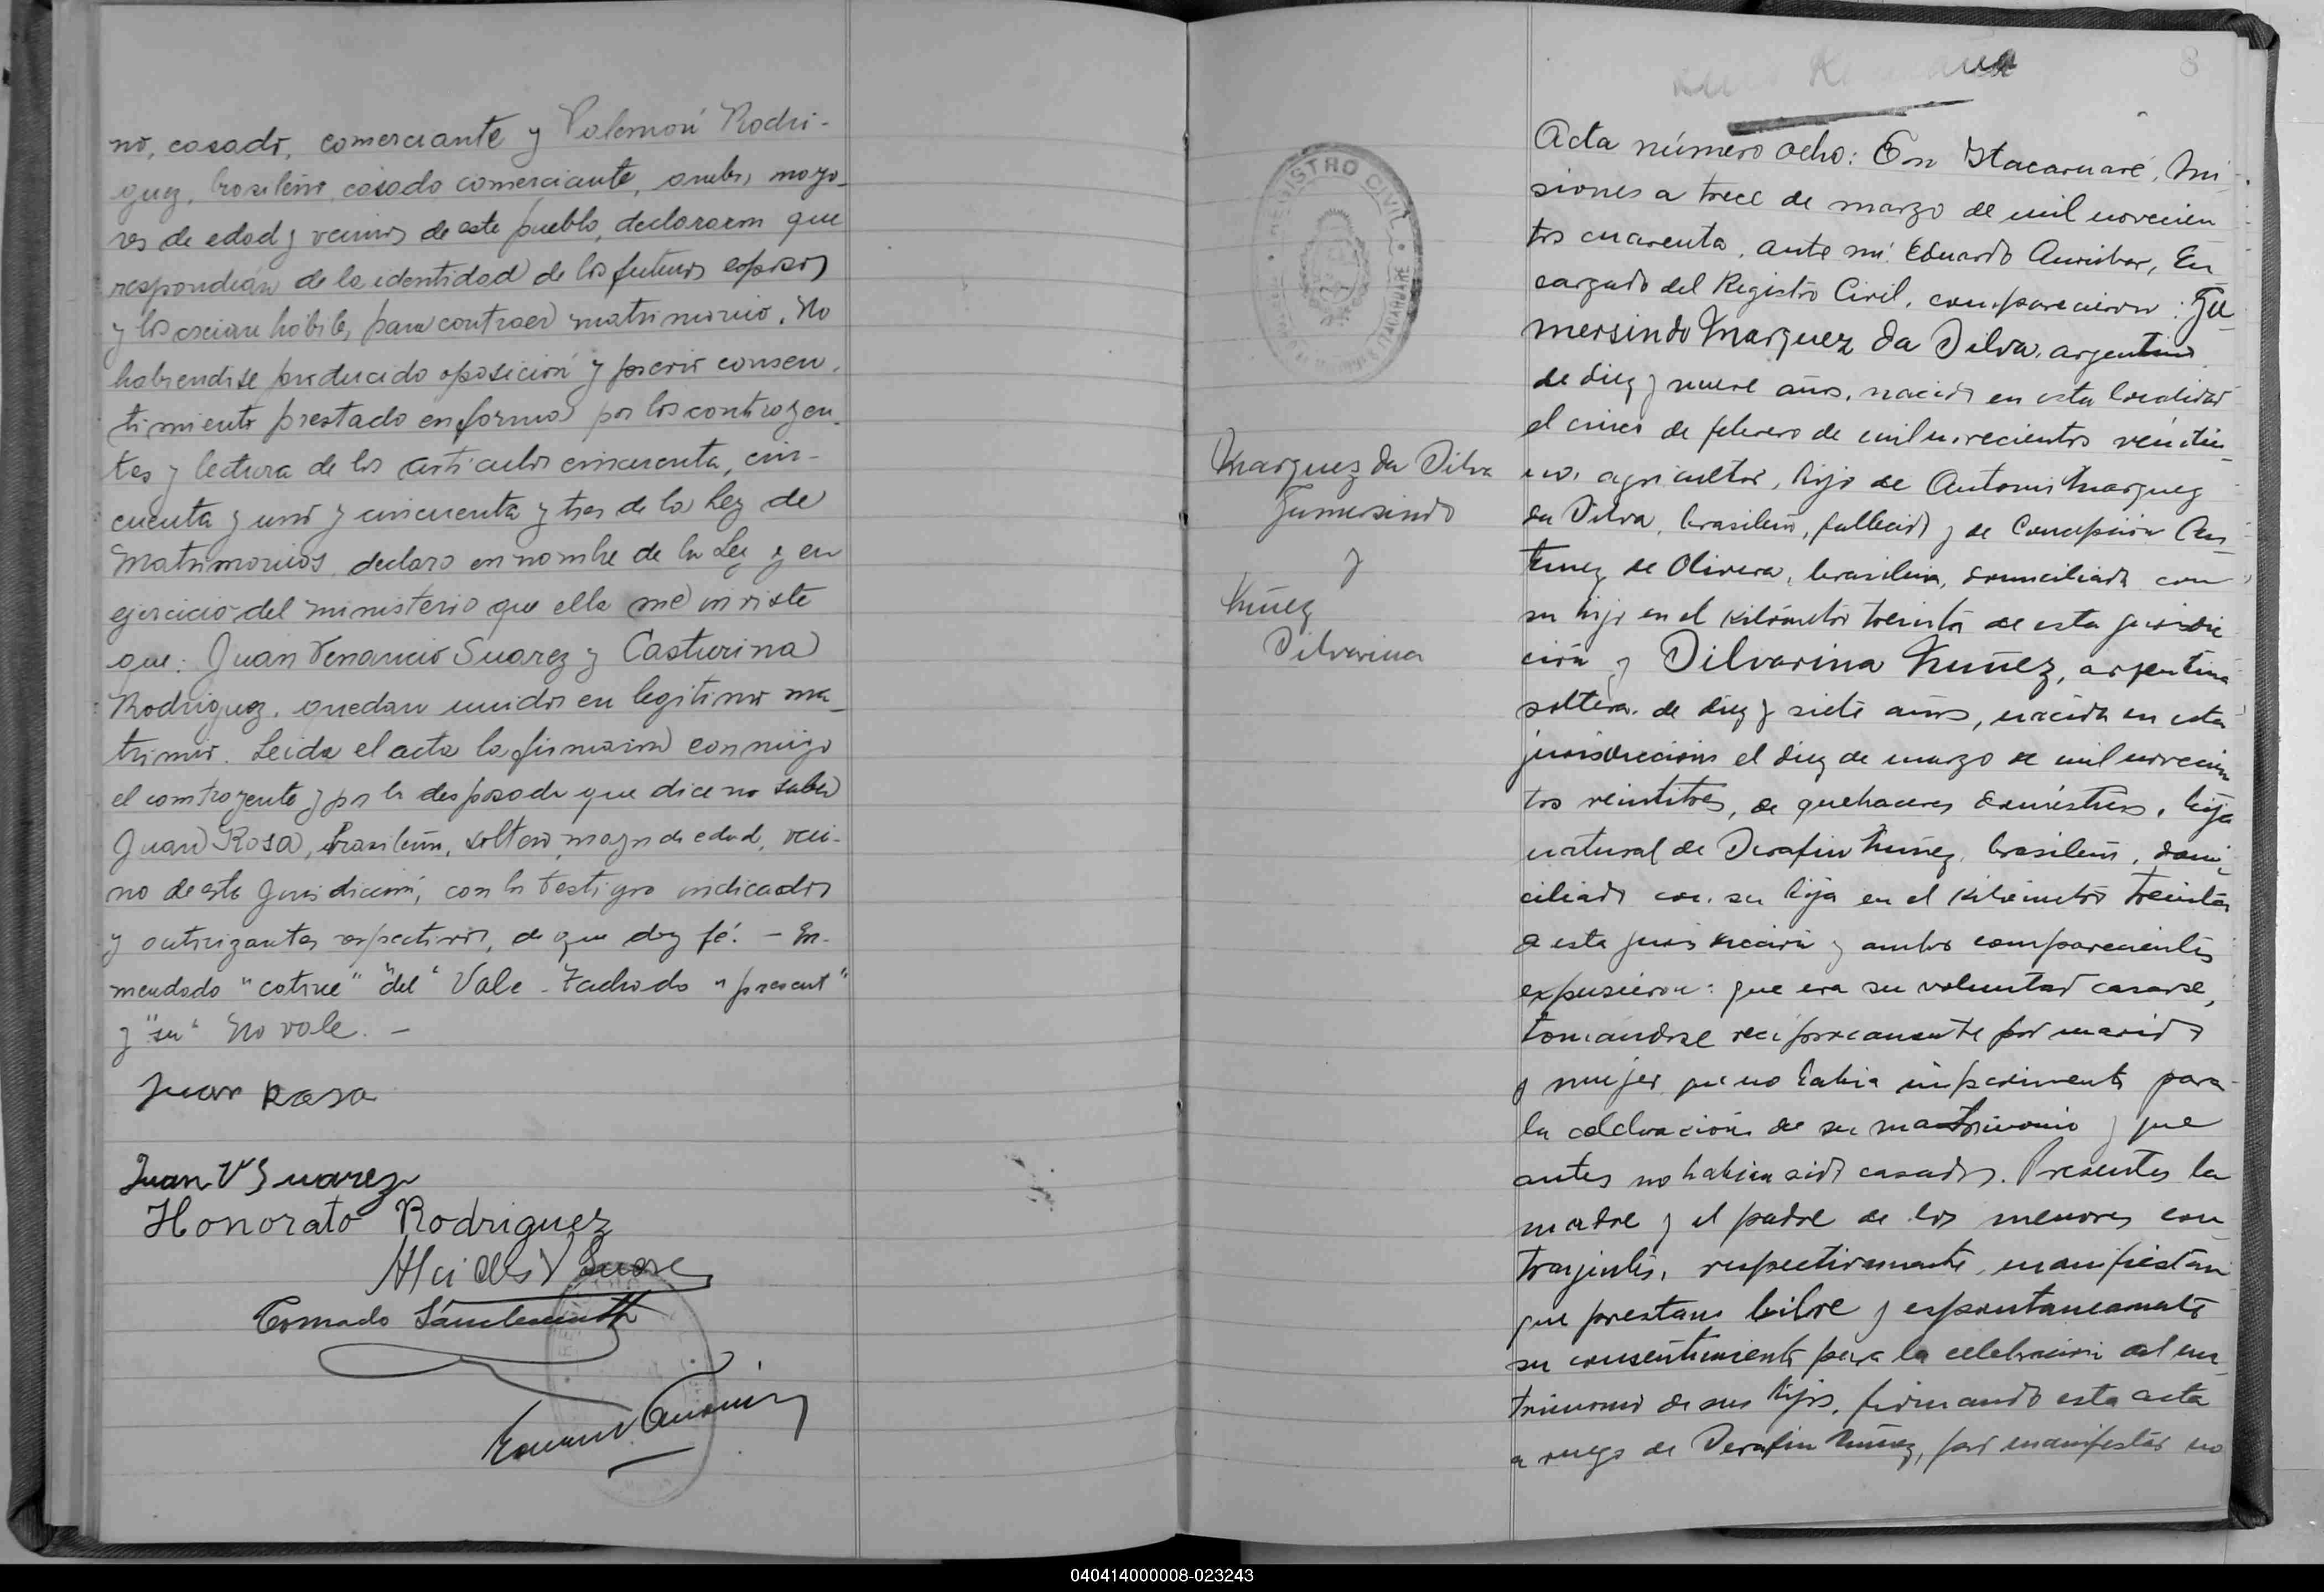 no, casado, comerciante y Polemón Rodri-
guez, brasileño, casado comerciante, ambos mayo-
res de edad y vecinos de este pueblo, declararon que
respondian de la identidad de los futuros esposos
y los creian hábiles para contraer matrimonio. No
habiendose producido oposición y previo consen-
timiento prestado en forma por los contrayen-
tes y lectura de los articulos cincuenta, cin-
cuenta y uno y cincuenta y tres de la Ley de
Matrimonios, declaro en nombre de la Ley y en
ejercicio del ministerio que ella me inviste
que: Juan Venancio Suarez y Casturina
Rodriguez, quedan unidos en legitimo ma-
trimio. Leida el acta la firmaron conmigo
el contrayente y por la desposada que dice no saber
Juan Rosa, brasileño, soltero, mayor de edad, veci-
no de esta Jurisdicción, con los testigos indicados
y autorizantes respectivos, de que doy fé. - En-
mendado "catorce" "del" Vale - Tachado "present"
y "su" No vale. -
Juan Rosa
Juan V Suarez
Honorato Rodriguez
Alcides V Suarez
Conrado
8
REGISTRO CIVIL
ITACARUARE
Marquez da Silva
Gumersindo
y
Nuñez
Silvarina
Acta número ocho: En Itacaruaré, Mi-
siones a trece de marzo de mil novecien
tos cuarenta, ante mi Eduardo, En
cargado del Registro Civil, comparecieron: Gu-
mersindo Marquez da Silva, argentino
de diez y nueve años, nacido en esta localidad
el cinco de febrero de mil novecientos veintiu-
no, agricultor, hijo de Antonio Marquez
da Silva, brasileño, fallecido y de Concepción An-
tunez de Olivera, brasileña, domiciliada con
su hijo en el kilómetro treinta de esta jurisdic
ción y Silvarina Nuñez, argentina
soltera, de diez y siete años, nacida en esta
jurisdicción el diez de marzo de mil novecien
tos veintitres, de quehaceres domésticos, hija
natural de Serafin Nuñez, brasileño, domi-
ciliado con su hija en el kilómetro treinta
de esta jurisdicción y ambos comparecientes
expusieron: que era su voluntad casarse,
tomandose reciprocamente por marido
y mujer, que no habia impedimento para
la celebración de su matrimonio y que
antes no habian sido casados. Presentes la
madre y el padre de los menores con
trayentes, respectivamente, manifiestan
que prestan libre y espontaneamente
su consentimiento para la celebración del ma
trimonio de sus hijos, firmando esta acta
a ruego de Serafin Nuñez, por manifestar no
040414000008-023243